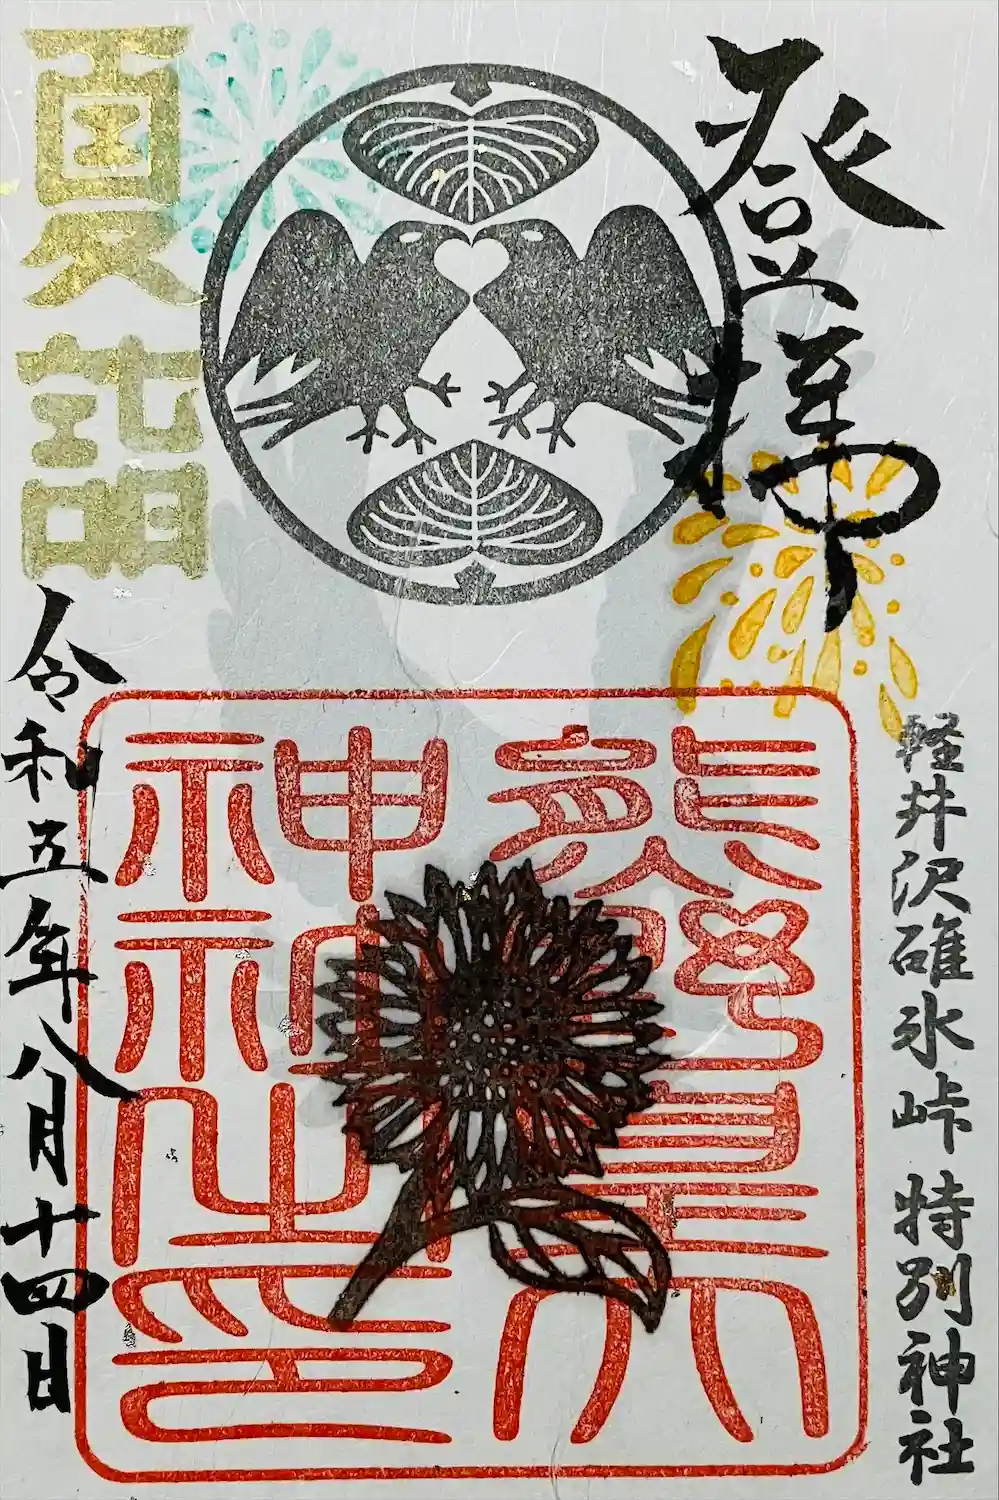 登拝
軽井沢碓氷峠 特別神社
熊野皇大
神社之印
夏詣
令和五年八月十四日